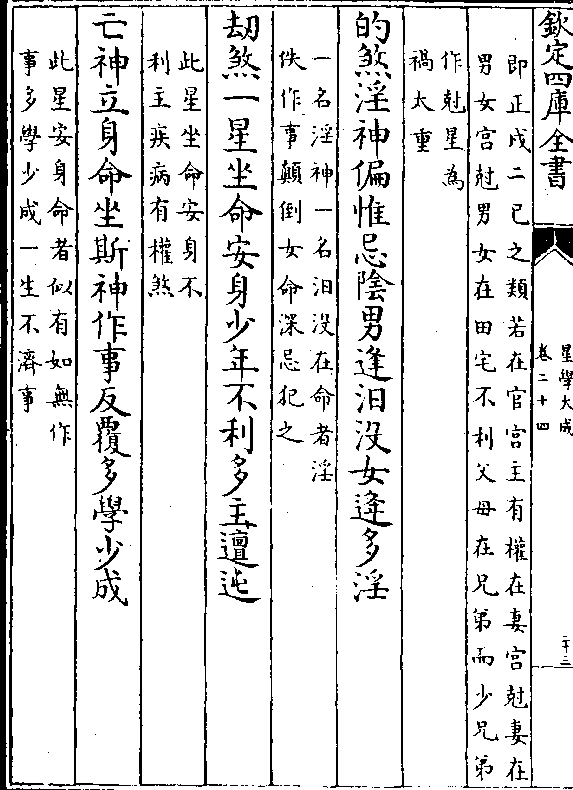 欽定四庫全書
星學大成
卷二十四
二十三
即正戌二巳之類若在官宮主有權在妻宮尅妻在
男女宮尅男女在田宅不利父母在兄弟而少兄弟
作尅星為
禍太重
的煞淫神偏惟忌陰男逢汨没女逢多淫
一名淫神一名汨没在命者淫
佚作事顛倒女命深忌犯之
劫煞一星坐命安身少年不利多主邅迍
此星坐命安身不
利主疾病有權煞
亡神立身命坐斯神作事反覆多學少成
此星安身命者似有如無作
事多學少成一生不濟事